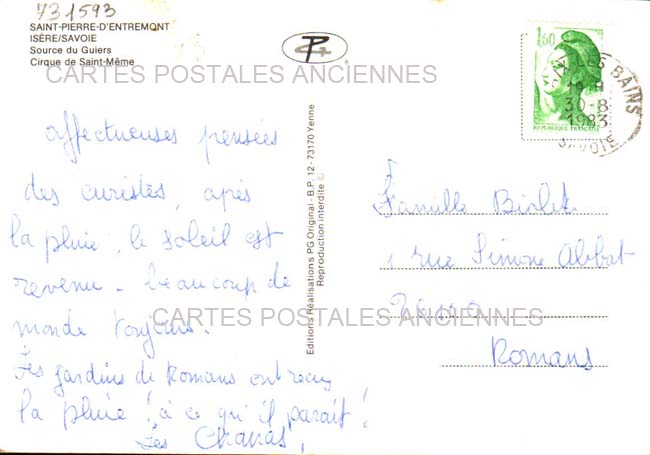 731593
SAINT-PIERRE-D'ENTREMONT
ISÈRE/SAVOIE
Source du Guiers
Cirque de Saint-Même
CARTES POSTALES ANCIENNES
affectueuses pensées
des curistes, après
la pluie, le soleil est
revenu - beaucoup de
monde toujours.
Les jardins de Romans ont reçu
la pluie ! à ce qu'il parait !
Les
Editions Réalisations PG Original - B.P. 12 - 73170 Yenne
Reproduction interdite
1,60
REPUBLIQUE FRANÇAISE
LES BAINS
30-8
1983
SAVOIE
Famille
1 rue Simone Abbat
Romans
CARTES POSTALES ANCIENNES